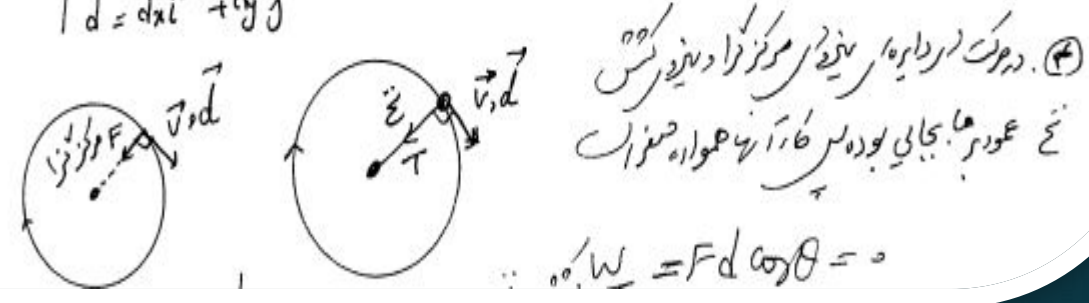 d = dxi + dyj
④. در حرکت دایره‌ای نیروی مرکزگرا و نیروی کشش
نخ عمود بر جابجایی بوده پس کار آنها همواره صفر است
v, d
F مرکزگرا
v, d
نخ
T
W = Fd cosθ = 0